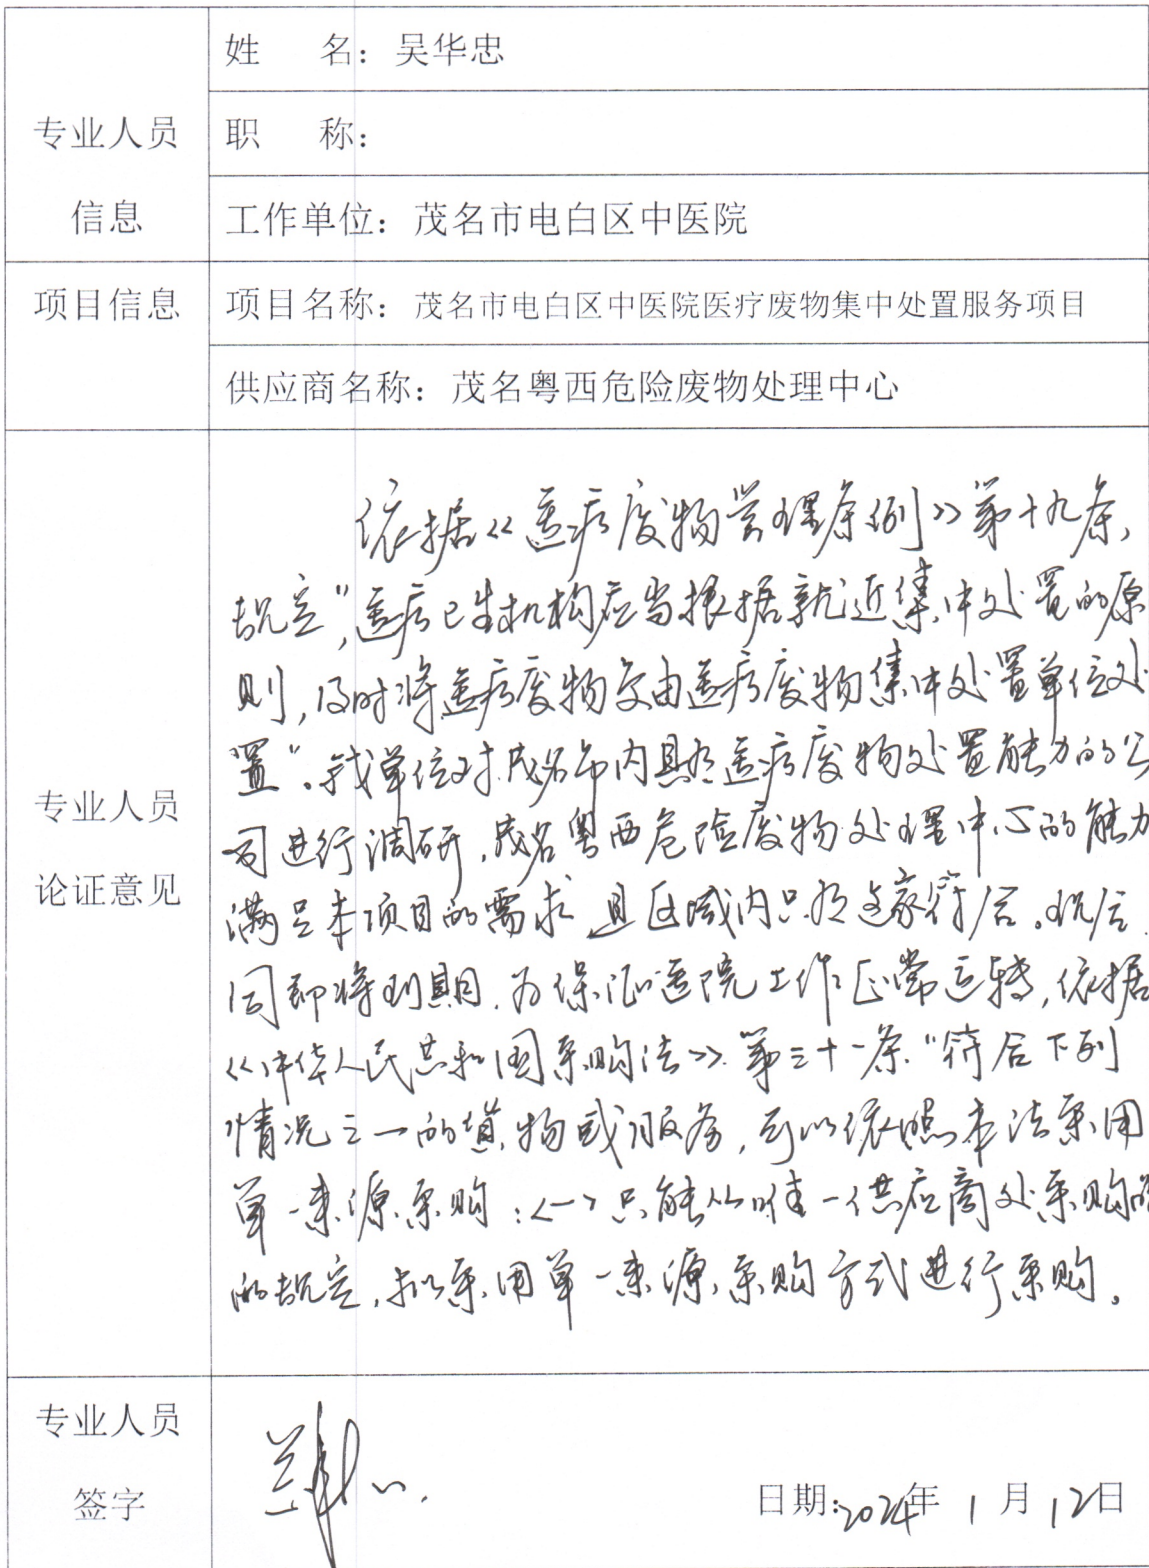 姓 名：吴华忠
专业人员
信息
职 称：
工作单位：茂名市电白区中医院
项目信息
项目名称：茂名市电白区中医院医疗废物集中处置服务项目
供应商名称：茂名粤西危险废物处理中心
专业人员
论证意见
依据《医疗废物管理条例》第十九条，
规定"，医疗卫生机构应当根据就近集中处置的原
则，及时将医疗废物交由医疗废物集中处置单位处
置"。我单位对茂名市内具有医疗废物处置能力的公
司进行调研，茂名粤西危险废物处理中心的能力
满足本项目的需求，且区域内只有这家符合。现合
同即将到期，为保证医院工作正常运转，依据
《中华人民共和国采购法》第三十一条"符合下列
情况之一的货物或服务，可以依照本法采用
单一来源采购：<一>只能从唯一供应商处采购
的规定，拟采用单一来源采购方式进行采购。
专业人员
签字
日期：2024年 1 月 12日